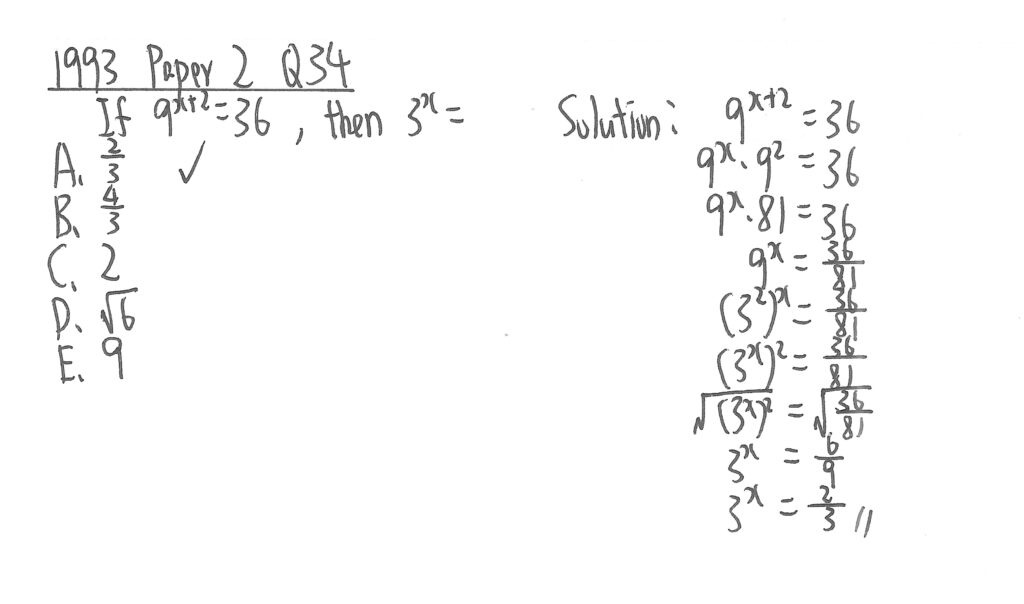 1993 Paper 2 Q34
If 9^(x+2) = 36, then 3^x =
A. 2/3 ✓
B. 4/3
C. 2
D. √6
E. 9
Solution: 9^(x+2) = 36
9^x · 9^2 = 36
9^x · 81 = 36
9^x = 36/81
(3^2)^x = 36/81
(3^x)^2 = 36/81
√((3^x)^2) = √(36/81)
3^x = 6/9
3^x = 2/3 //